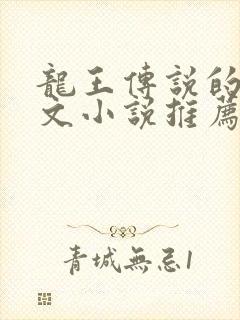 龍王傳説的
文小説推薦
青城無忌1